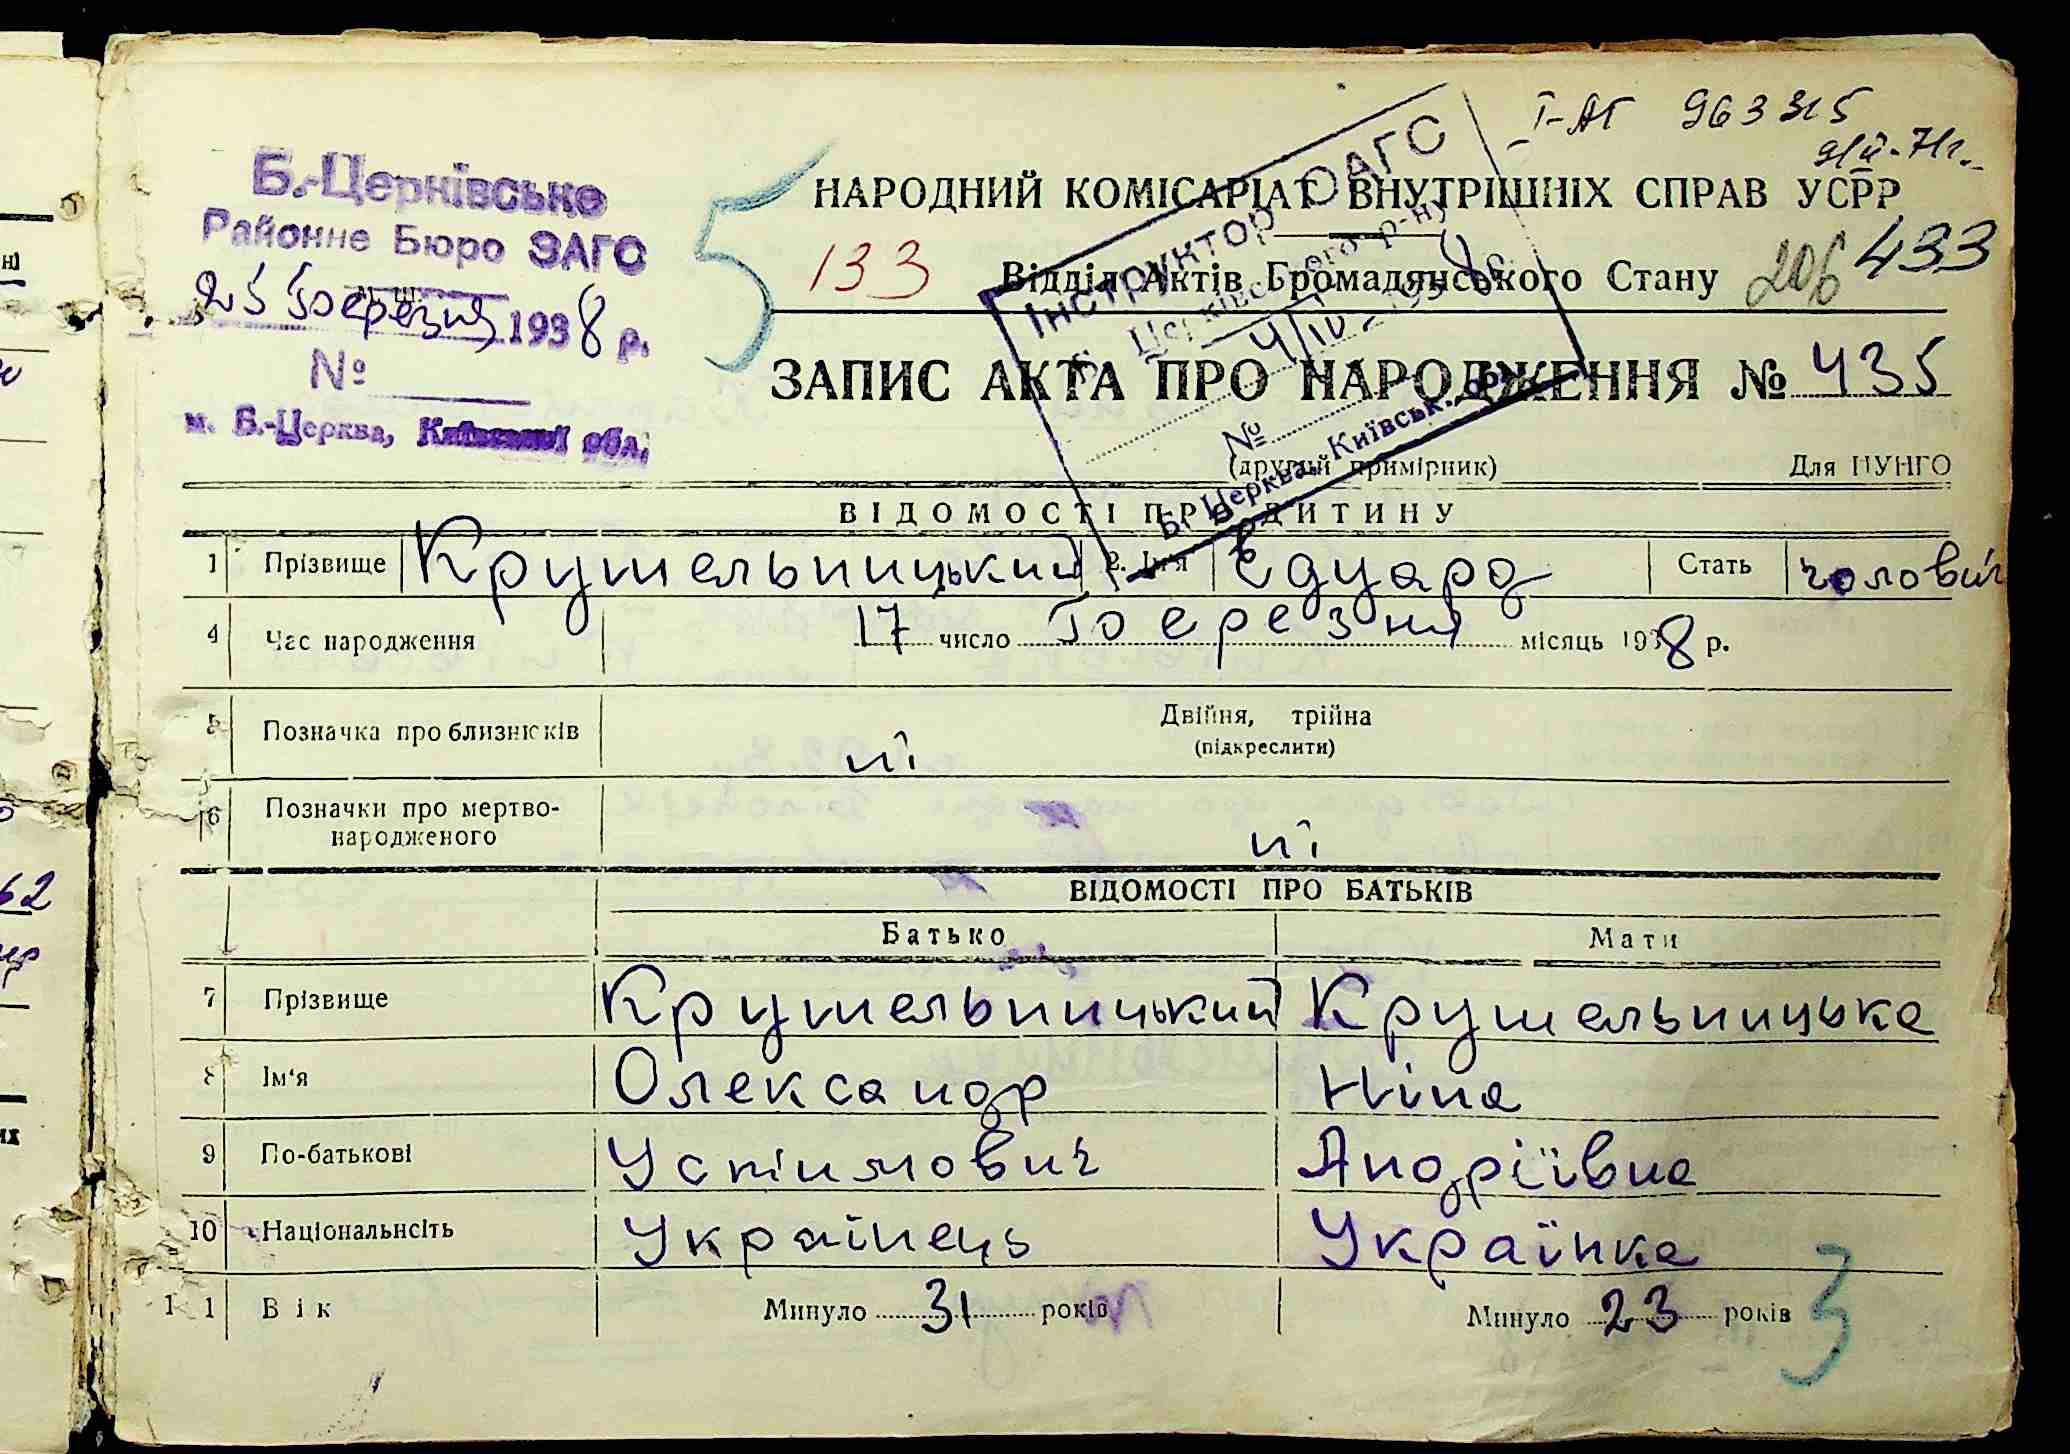 І-АГ 963315
Б.-Церківське
Районне Бюро ЗАГС
25 березня 1938 р.
№
м. Б.-Церква, Київської обл.
5
НАРОДНИЙ КОМІСАРІАТ ВНУТРІШНІХ СПРАВ УСРР
133 Відділ Актів Громадянського Стану 206 433
Інструктор ЗАГС
Б. Церківського р-ну
4/IV 1938 р.
№
Б. Церква, Київськ. обл.
ЗАПИС АКТА ПРО НАРОДЖЕННЯ № 435
(другий примірник) Для ЦУНГО
ВІДОМОСТІ ПРО ДИТИНУ
1 Прізвище Крушельницький 2. Ім'я Едуард Стать чоловіч
4 Час народження 17 число березня місяць 1938 р.
5 Позначка про близнюків ні Двійня, трійна
(підкреслити)
6 Позначки про мертво-
народженого ні
ВІДОМОСТІ ПРО БАТЬКІВ
Батько Мати
7 Прізвище Крушельницький Крушельницька
8 Ім'я Олександр Ніна
9 По-батькові Устимович Андріївна
10 Національнсіть Українець Українка
11 Вік Минуло 31 років Минуло 23 років
3